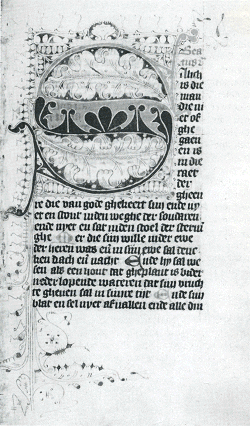 Bea
tus
illuch
is die
man
die ni
et of
ghe
gaen
en is
in die
raet
der
gheen
re die van gode ghekeert sijn ende ny
et en stont inden weghe der sondaren
ende nyet en sat inden stoel der steruı
ghe Mer die sijn wille inder ewe
der heren was en in sijn ewe sal den
ken dach en nacht Ende hy sal we
sen als een hout dat gheplant is bider
nederlopende wateren dat sijn vruch
te gheuen sal in sijnre tijt Ende sijn
blat en sel nyet afuallen ende alle din